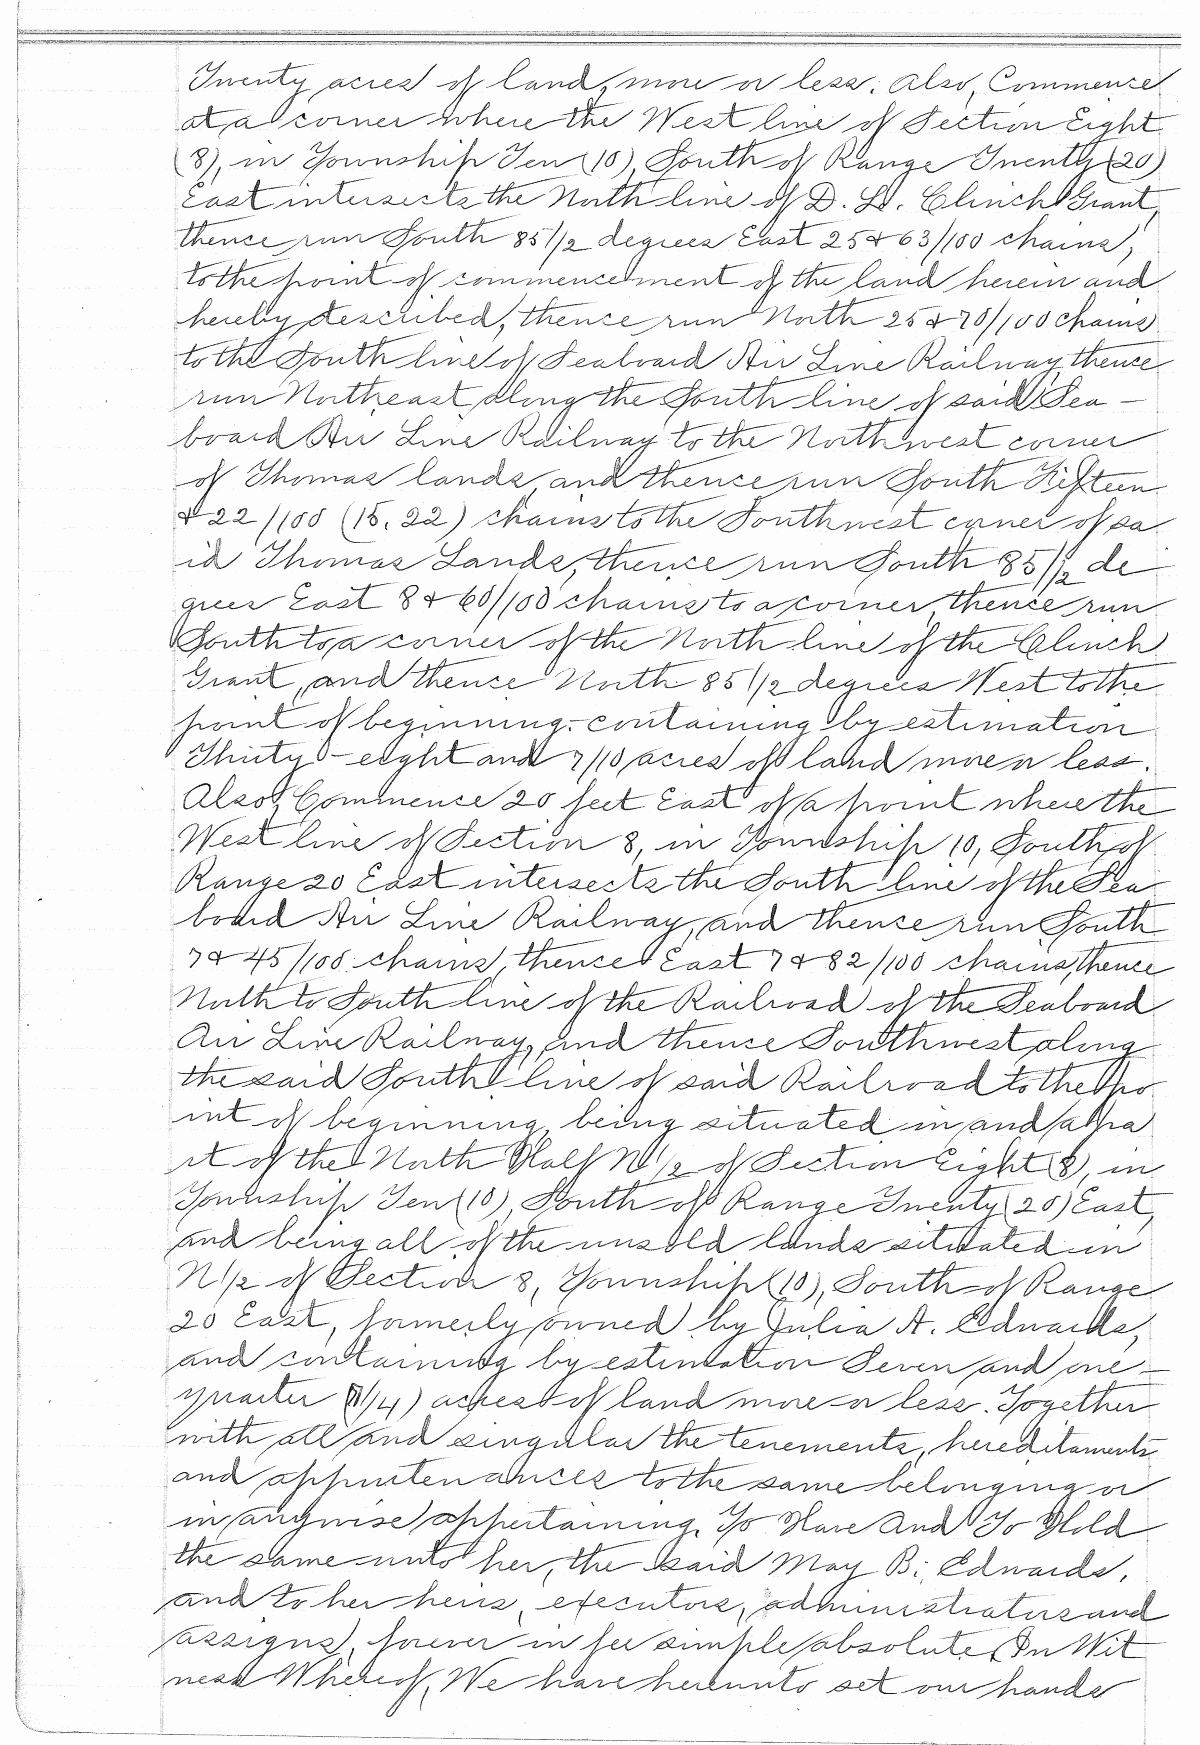 Twenty acres of land, more or less. Also, Commence
at a corner where the West line of Section Eight
(8), in Township Ten (10), South of Range Twenty (20)
East intersects the North line of D. L. Clinch Grant,
thence run South 85 1/2 degrees East 25 & 63/100 chains,
to the point of commencement of the land herein and
hereby described, thence run North 25 & 70/100 chains
to the South line of Seaboard Air Line Railway, thence
run Northeast along the South line of said Sea-
board Air Line Railway to the Northwest corner
of Thomas lands, and thence run South Fifteen
& 22/100 (15.22) chains to the Southwest corner of sa
id Thomas Lands, thence run South 85 1/2 de
grees East 8 & 60/100 chains to a corner, thence run
South to a corner of the North line of the Clinch
Grant, and thence North 85 1/2 degrees West to the
point of beginning. containing by estimation
Thirty-eight and 7/10 acres of land more or less.
Also, Commence 20 feet East of a point where the
West line of Section 8, in Township 10, South of
Range 20 East intersects the South line of the Sea
board Air Line Railway, and thence run South
7 & 45/100 chains, thence East 7 & 82/100 chains, thence
North to South line of the Railroad of the Seaboard
Air Line Railway, and thence Southwest along
the said South line of said Railroad to the po
int of beginning, being situated in and a pa
rt of the North Half N 1/2 of Section Eight (8), in
Township Ten (10), South of Range Twenty (20) East,
and being all of the unsold lands situated in
N 1/2 of Section 8, Township (10), South of Range
20 East, formerly owned by Julia A. Edwards,
and containing by estimation Seven and one-
quarter (7 1/4) acres of land more or less. Together
with all and singular the tenements, hereditaments
and appurtenances to the same belonging or
in anywise appertaining. To Have And To Hold
the same unto her, the said May B. Edwards,
and to her heirs, executors, administrators and
assigns, forever in fee simple absolute. In Wit
ness Whereof, We have hereunto set our hands